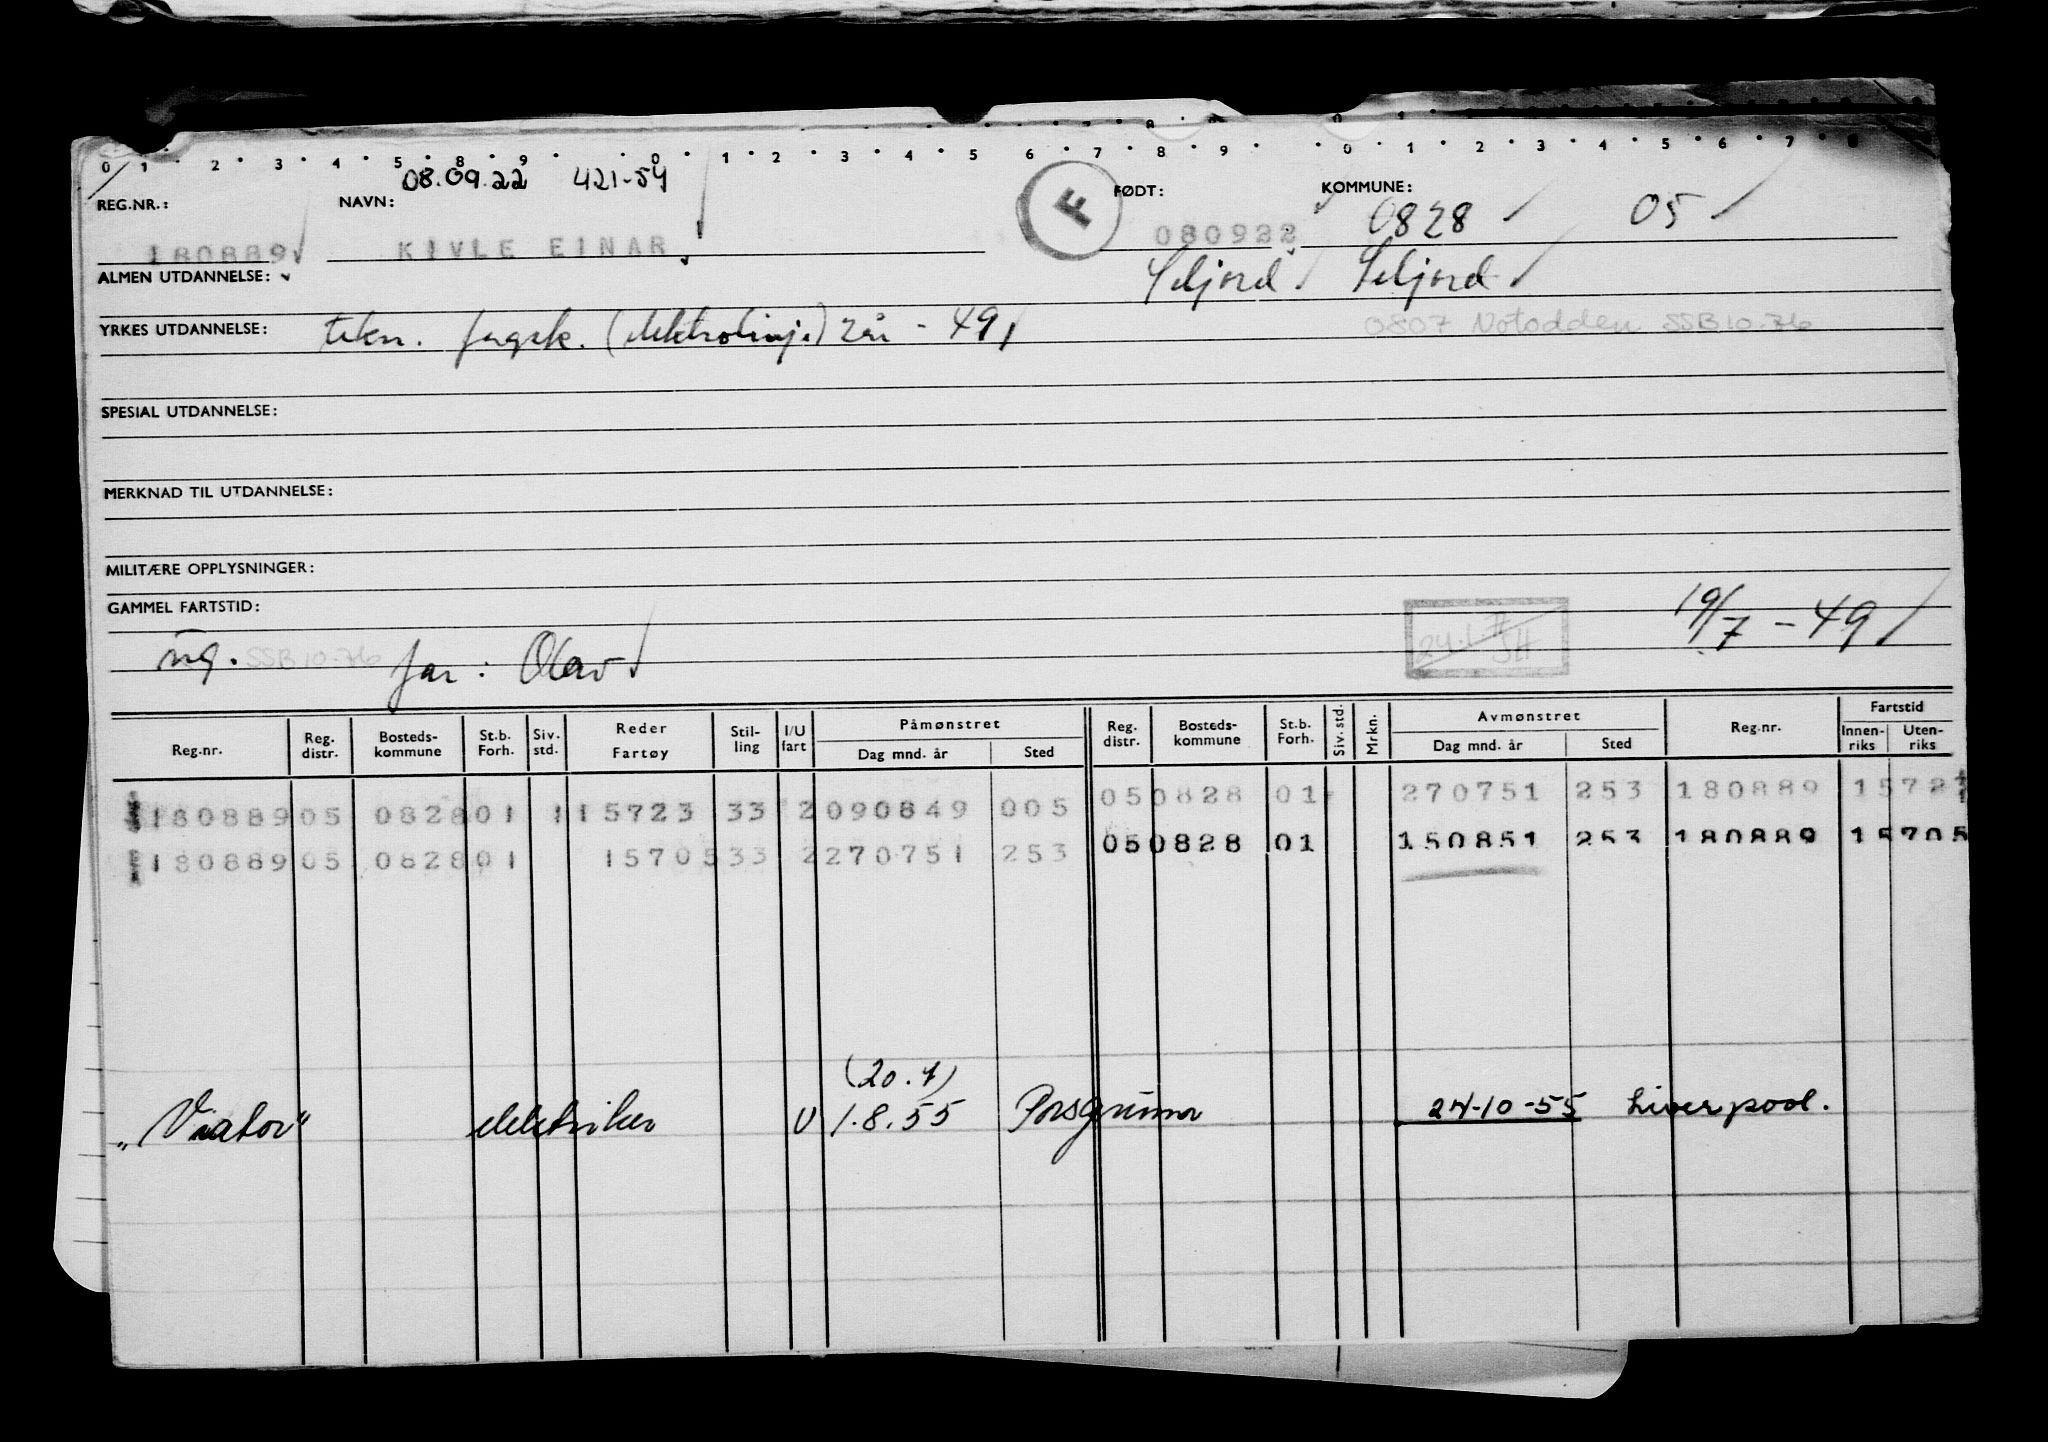 0 1 2 3 4 5 8 9 0 1 2 3 4 5 6 7 8 9 0 1 2 3 4 5 6 7 8
08.09.22 421-54
REG.NR.: NAVN: F FØDT: KOMMUNE: 0828 05
180889 KIVLE EINAR 080922
ALMEN UTDANNELSE: Seljord Seljord
YRKES UTDANNELSE: tekn. fagsk. (elektrolinje) 2 år - 49 0807 Notodden SSB 10.76
SPESIAL UTDANNELSE:
MERKNAD TIL UTDANNELSE:
MILITÆRE OPPLYSNINGER:
GAMMEL FARTSTID: 19/7 - 49
ug. SSB 10-76 far: Olav
Reg.nr. Reg. distr. Bosteds- kommune St.b. Forh. Siv. std. Reder Fartøy Stil- ling I/U fart Påmønstret Dag mnd. år Sted Reg. distr. Bosteds- kommune St.b. Forh. Siv. std. Mrkn. Avmønstret Dag mnd. år Sted Reg.nr. Fartstid Innen- riks Uten- riks
180889 05 0828 01 1 15723 33 2 090849 005 05 0828 01 270751 253 180889 1572
180889 05 0828 01 15705 33 2 270751 253 05 0828 01 150851 253 180889 15705
(20.7)
"Viator" elektriker U 1.8.55 Porsgrunn 24-10-55 Liverpool.